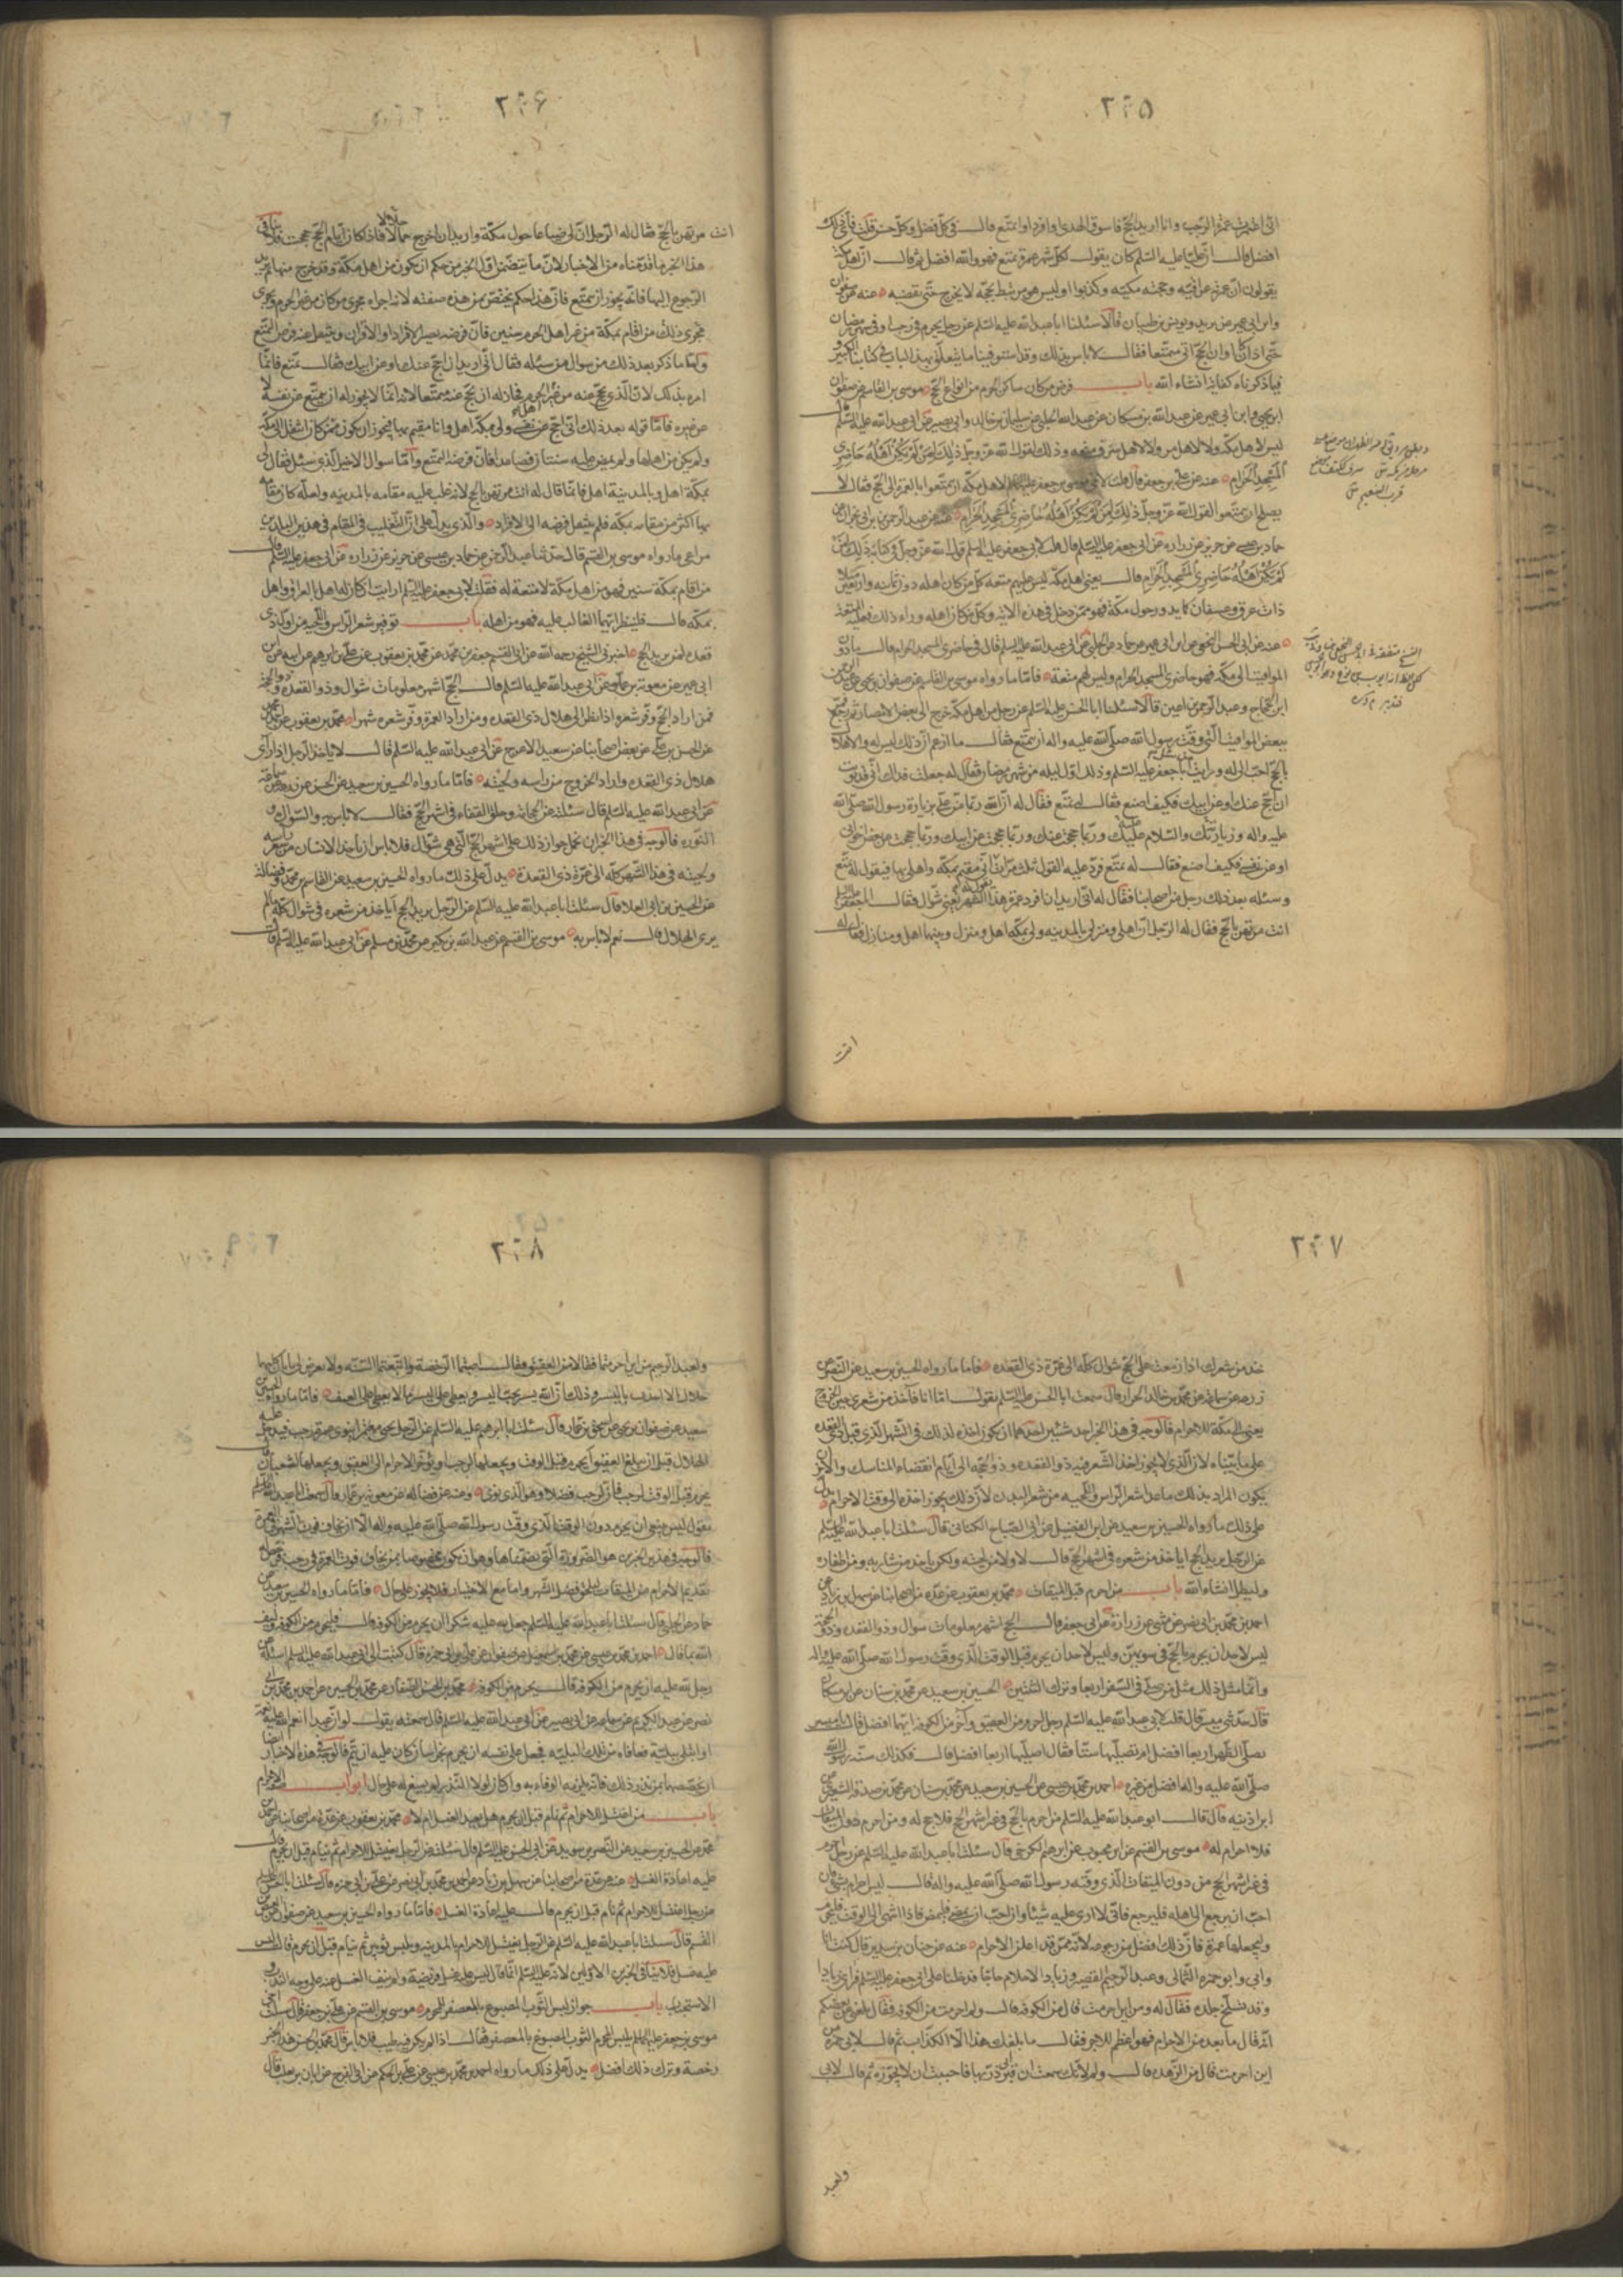 ٢٠٥
انى اعتمرت عمرة الرجب وانا اريد الحج فاسوق الهدى او افرد او اتمتع قالــ فى كل فضل وكل حسن قلت فاى ذلك
افضل قالــ ان عليا عليه السلم كان يقولــ لكل شهر عمرة تمتع فهو والله افضل ثم قالــ ان اهل مكة
يقولون ان عمرته عراقية وحجته مكية وكذبوا اوليس هو مرتبط بحجه لا يخرج حتى يقضيه عنه عن صفوان
وابن ابى عمير عن بريد ويونس بن ظبيان قالا سئلنا ابا عبد الله عليه السلم عن رجل يحرم فى رجب او فى شهر رمضان
حتى اذا كان اوان الحج اتى متمتعا فقالــ لا باس بذلك وقد استوفينا ما يتعلق بهذا الباب فى كتابنا الكبير
فيما ذكرناه كفاية انشاء الله بابــ فرض من كان ساكن الحرم من انواع الحج موسى بن القاسم عن صفوان
بن يحيى وابن ابى عمير عن عبد الله بن مسكان عن عبيد الله الحلبى وسليمان بن خالد وابى بصير عن ابى عبد الله عليه السلم قالــ
ليس لاهل مكة ولا لاهل مر ولا لاهل سرف متعة وذلك لقول الله عز وجل ذلك لمن لم يكن اهله حاضرى
المسجد الحرام عنه عن على بن جعفر قال قلت لاخى موسى بن جعفر عليهما السلام لاهل مكة ان يتمتعوا بالعمرة الى الحج فقال لا
يصلح ان يتمتعوا لقول الله عز وجل ذلك لمن لم يكن اهله حاضرى المسجد الحرام عنه عن عبد الرحمن بن ابى نجران عن
حماد بن عيسى عن حريز عن زراره عن ابى جعفر عليه السلم قال قلت لابى جعفر عليه السلم قول الله عز وجل فى كتابه ذلك لمن
لم يكن اهله حاضرى المسجد الحرام قالــ يعنى اهل مكة ليس عليهم متعة كل من كان اهله دون ثمانية واربعين ميلا
ذات عرق وعسفان كما يدور حول مكة فهو ممن دخل فى هذه الاية وكل من كان اهله وراء ذلك فعليه المتعة
عنه عن ابى الحسن النخعى عن ابن ابى عمير عن حماد عن الحلبى عن ابى عبد الله عليه السلم قال فى حاضرى المسجد الحرام قالــ ما دون
المواقيت الى مكة فهو حاضرى المسجد الحرام وليس لهم متعة فاما ما رواه موسى بن القاسم عن صفوان بن يحيى عن عبد الرحمن
ابن الحجاج وعبد الرحمن بن اعين قالا سئلنا ابا الحسن عليه السلم عن رجل من اهل مكة خرج الى بعض الامصار ثم رجع
ببعض المواقيت التى وقت رسول الله صلى الله عليه واله ان يتمتع فقالــ ما ازعم ان ذلك ليس له والاهلال
بالحج احب الى له ورايت من سئل ابا جعفر عليه السلم وذلك اول ليلة من شهر رمضان فقال له جعلت فداك انى قد نويت
ان احج عنك او عن ابيك فكيف اصنع فقالــ له تمتع فقال له ان الله ربما من على بزيارة رسول الله صلى الله
عليه واله وزيارتك والسلام عليك وربما حججت عنك وربما حججت عن ابيك وربما حججت عن بعض اخوانى
او عن نفسى فكيف اصنع فقالــ له تمتع فرد عليه القول ثلث مرات انى مقيم بمكة واهلى بها فيقول له تمتع
وسئله بعد ذلك رجل من اصحابنا فقال له انى اريد ان افرد عمرة هذا الشهر يعنى شوال فقالــ
انت مرتهن بالحج فقال له الرجل ان اهلى ومنزلى بالمدينه ولى بمكة اهل ومنزل وبينهما اهل ومنازل فقال له
انت
٢٠٦
انت مرتهن بالحج فقال له الرجل ان لى ضياعا حول مكة واريد ان اخرج حلالا فاذا كان ايام الحج حججت
هذا الخبر ما قدمناه من الاخبار لان ما يتضمن اول الخبر من حكم ان يكون من اهل مكة وقد خرج منها ثم يريد
الرجوع اليها فانه يجوز ان يتمتع فان هذا حكم يختص من هذه صفته لانه اجراه مجرى من كان من غير الحرم ويجرى
مجرى ذلك من اقام بمكة من غير اهل الحرم سنتين فان فرضه يصير الافراد او الاقران وينتقل عنه فرض التمتع
واما ما ذكر بعد ذلك من سوال من سئله فقال انى اريد ان احج عنك او عن ابيك فقالــ تمتع فانما
امره بذلك لان الذى يحج عنه من غير اهل الحرم فجاز له ان يحج عنه متمتعا لانه انما لا يجوز له ان يتمتع عن نفسه لا
عن غيره فاما قوله بعد ذلك انى احج عن نفسى ولى بمكة اهل وانا مقيم بها فيجوز ان يكون ممن كان انتقل الى مكة
ولم يكن من اهلها ولم يمض عليه سنتان فصاعدا فان فرضه التمتع واما سوال الاخير الذى سئل فقال لى
بمكة اهل وبالمدينة اهل فانما قال له انت مرتهن بالحج لانه غلب عليه مقامه بالمدينه ولعله كان مقامه
بها اكثر من مقامه بمكة فلم ينتقل فرضه الى الافراد والذى يدل على ان التغليب فى المقام فى هذين البلدين
مراعى ما رواه موسى بن القسم قال حدثنا عبد الرحمن عن حماد بن عيسى عن حريز عن زراره عن ابى جعفر عليه السلم قالــ
من اقام بمكة سنتين فهو من اهل مكة لا متعة له فقلت لابى جعفر عليه السلم ارايت ان كان له اهل بالعراق واهل
بمكة قالــ فلينظر ايهما الغالب عليه فهو من اهله بابــ توفير شعر الراس واللحية من اول ذى
قعدة لمن يريد الحج اخبرنى الشيخ رحمه الله عن ابى القسم جعفر بن محمد عن محمد بن يعقوب عن على بن ابراهيم عن ابيه عن ابن
ابى عمير عن معوية بن عمار عن ابى عبد الله عليه السلم قالــ الحج اشهر معلومات شوال وذو القعدة وذو الحجة
فمن اراد الحج وفر شعره اذا نظر الى هلال ذى القعده ومن اراد العمرة وفر شعره شهرا محمد بن يعقوب عن
عن الحسن بن على عن بعض اصحابنا عن سعيد الاعرج عن ابى عبد الله عليه السلم قالــ لا ياخذ الرجل اذا راى
هلال ذى القعده واراد الخروج من راسه ولحيته فاما ما رواه الحسين بن سعيد عن الحسن عن زرعة عن سماعة
عن ابى عبد الله عليه السلم قال سئلته عن الحجامة وحلق القفاء فى اشهر الحج فقالــ لا باس به والسواك و
النورة فالوجه فى هذا الخبر ان نحمل جواز ذلك على اشهر الحج التى هى شوال فلا باس ان ياخذ الانسان من شعر راسه
ولحيته فى هذا الشهر كله الى غرة ذى القعدة يدل على ذلك ما رواه الحسين بن سعيد عن القاسم بن محمد وفضالة
عن الحسين بن ابى العلا قال سئلت ابا عبد الله عليه السلم عن الرجل يريد الحج اياخذ من شعره فى شوال كله ما لم
يرى الهلال قالــ نعم لا باس به موسى بن القسم عن عبد الله بن بكير عن محمد بن مسلم عن ابى عبد الله عليه السلم قالــ
٢٠٧
خذ من شعرك اذا ازمعت على الحج شوال كله الى غرة ذى القعده فاما ما رواه الحسين بن سعيد عن النضر عن
زرعه عن سماعة عن محمد بن خالد الخزاز قال سمعت ابا الحسن عليه السلم يقولــ اما انا فآخذ من شعرى حين الخروج
يعنى الى مكة للاحرام فالوجه فى هذا الخبر احد شيئين احدهما ان يكون اخذه لذلك فى الشهر الذى قبل ذى القعده
على ما بيناه لان الذى لا يجوز اخذ الشعر فيه ذو القعده وذو الحجه الى ايام انقضاء المناسك والاخر
يكون المراد بذلك ما عدا شعر الراس واللحيه من شعر البدن لان ذلك يجوز اخذه الى وقت الاحرام يدل
على ذلك ما رواه الحسين بن سعيد عن ابن الفضيل عن ابى الصباح الكنانى قال سئلت ابا عبد الله عليه السلم
عن الرجل يريد الحج اياخذ من شعره فى اشهر الحج قالــ لا ولا من لحيته ولكن ياخذ من شاربه ومن اظفاره
وليطل انشاء الله بابــ من احرم قبل الميقات محمد بن يعقوب عن عدة من اصحابنا عن سهل بن زياد عن
احمد بن محمد بن ابى نصر عن مثنى عن زرارة عن ابى جعفر قالــ الحج اشهر معلومات شوال وذو القعده وذو الحجة
ليس لاحد ان يحرم بالحج فى سويهن وليس لاحد ان يحرم قبل الوقت الذى وقت رسول الله صلى الله عليه واله
وانما مثل ذلك مثل من صلى فى السفر اربعا وترك الثنتين الحسين بن سعيد عن محمد بن سنان عن ابن مسكان
قال حدثنى ميسر قال قلت لابى عبد الله عليه السلم رجل احرم من العقيق واخر من الكوفه ايهما افضل قال يا ميسر
تصلى الظهر اربعا افضل ام تصليها ستا فقال اصليها اربعا افضل قالــ فكذلك سنة رسول الله
صلى الله عليه واله افضل من غيره احمد بن محمد بن عيسى عن الحسين بن سعيد عن محمد بن سنان عن محمد بن صدقة الشعيرى عن
ابن اذينه قال قالــ ابو عبد الله عليه السلم من احرم بالحج فى غير اشهر الحج فلا حج له ومن احرم دون الميقات
فلا احرام له موسى بن القسم عن ابن محبوب عن ابراهيم الكرخى قال سئلت ابا عبد الله عليه السلم عن رجل احرم
فى غير اشهر الحج من دون الميقات الذى وقته رسول الله صلى الله عليه واله قالــ ليس احرامه بشى فان
احب ان يرجع الى اهله فليرجع فانى لا ارى عليه شيئا وان احب ان يمضى فليمض فاذا انتهى الى الوقت فليحرم
وليجعلها عمرة فان ذلك افضل من رجوعه لانه ممن قد اعلن الاحرام عنه عن حنان بن سدير قال كنت انا
وابى وابو حمزه الثمالى وعبد الرحيم القصير وزياد الاحلام حاجا فدخلنا على ابى جعفر عليه السلم فراى زيادا
وقد تسلخ جلده فقال له من اين احرمت قال من الكوفه قالــ ولم احرمت من الكوفه فقال بلغنى عن بعضكم
انه قال ما بعد من الاحرام فهو اعظم للاجر فقالــ ما بلغك هذا الا الكذاب ثم قالــ لابى حمزه من
اين احرمت قال من الربذه قالــ ولم لانك سمعت ان قبر ابى ذر بها فاحببت ان لا تجوزه ثم قالــ لابى
ولعبد
٢٠٨
ولعبد الرحيم من اين احرمتما فقالا من العقيق فقالــ اصبتما الرخصة واتبعتما السنة ولا يعرض لى بابان كليهما
حلال الا اخذت باليسير وذلك ان الله يسير يحب اليسير ويعطى على اليسير ما لا يعطى على العنف فاما ما رواه الحسين بن
سعيد عن صفوان بن يحيى عن اسحق بن عمار قال سئلت ابا ابرهيم عليه السلم عن الرجل يجى معتمرا ينوى عمرة رجب فيدخل عليه
الهلال قبل ان يبلغ العقيق ايحرم قبل الوقت ويجعلها لرجب او يؤخر الاحرام الى العقيق ويجعلها لشعبان قالــ
يحرم قبل الوقت لرجب فان لرجب فضلا وهو الذى نوى وعنه عن فضاله عن معوية بن عمار قال سمعت ابا عبد الله عليه السلم
يقول ليس ينبغى ان يحرم دون الوقت الذى وقت رسول الله صلى الله عليه واله الا ان يخاف فوت الشهر فى العمرة
فالوجه فى هذين الخبرين هو الضرورة التى تضمناها وهو ان يكون مخصوصا بمن يخاف فوت العمرة فى رجب
تقديم الاحرام من الميقات ليلحق فضل الشهر واما مع الاختيار فلا يجوز على حال فاما ما رواه الحسين بن سعيد عن
حماد عن الحلبى قال سئلت ابا عبد الله عليه السلم جعل لله عليه شكرا ان يحرم من الكوفه قالــ فليحرم من الكوفه وليف
لله بما قال احمد بن محمد بن عيسى عن محمد بن اسمعيل عن صفوان عن على بن ابى حمزه قال كتبت الى ابى عبد الله عليه السلم اسئله عن
رجل لله عليه ان يحرم من الكوفه قالــ يحرم من الكوفه محمد بن الحسن الصفار عن محمد بن الحسين عن احمد بن محمد بن ابى
نصر عن عبد الكريم عن سماعه عن ابى بصير عن ابى عبد الله عليه السلم قال سمعته يقولــ لو ان عبدا انعم الله عليه نعمة
او ابتلى ببلية فعافاه من تلك البلية فجعل على نفسه ان يحرم بخراسان كان عليه ان يتم فالوجه فى هذه الاخبار ايضا
ان نخصصها بمن نذر ذلك فانه يلزمه الوفاء به وان كان لولا النذر لم يسغ له على حال ابوابــ صفة الاحرام
بابــ من اغتسل للاحرام ثم نام قبل ان يحرم هل يعيد الغسل ام لا محمد بن يعقوب عن عدة من اصحابنا عن احمد بن
محمد عن الحسين بن سعيد عن النضر بن سويد عن ابى الحسن عليه السلم قال سئلته عن الرجل يغتسل للاحرام ثم ينام قبل ان يحرم قالــ
عليه اعادة الغسل عنه عن عدة من اصحابنا عن سهل بن زياد عن احمد بن محمد بن ابى نصر عن على بن ابى حمزه قال سئلت ابا الحسن عليه السلم
عن رجل اغتسل للاحرام ثم نام قبل ان يحرم قالــ عليه اعادة الغسل فاما ما رواه الحسين بن سعيد عن صفوان عن العيص بن
القسم قال سئلت ابا عبد الله عليه السلم عن الرجل يغتسل للاحرام بالمدينه ويلبس ثوبين ثم ينام قبل ان يحرم قال ليس
عليه غسل فلا ينافى الخبرين الاولين لانه عليه السلم انما قال ليس عليه غسل فريضة ولم ينف الغسل عنه على وجه الندب و
الاستحباب بابــ جواز لبس الثوب المصبوغ بالعصفر للمحرم موسى بن القسم عن على بن جعفر قال سئلت اخى
موسى بن جعفر عليهما السلام يلبس المحرم الثوب المصبوغ بالعصفر فقالــ اذا لم يكن فيه طيب فلا باس قال محمد بن الحسن هذا الخبر
رخصة وترك ذلك افضل يدل على ذلك ما رواه احمد بن محمد بن عيسى عن على بن الحكم عن ابى الفرج عن ابان بن تغلب قال